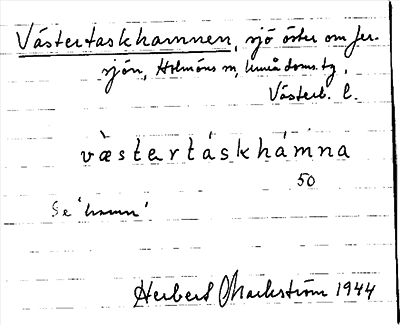 Västertaskhamnen, sjö öster om Jer-
sjön, Holmöns sn, Umeå doms. tg,
Västerb. l.
vàstertáskhámna
50
Se 'hamn'
Herbert Markström 1944